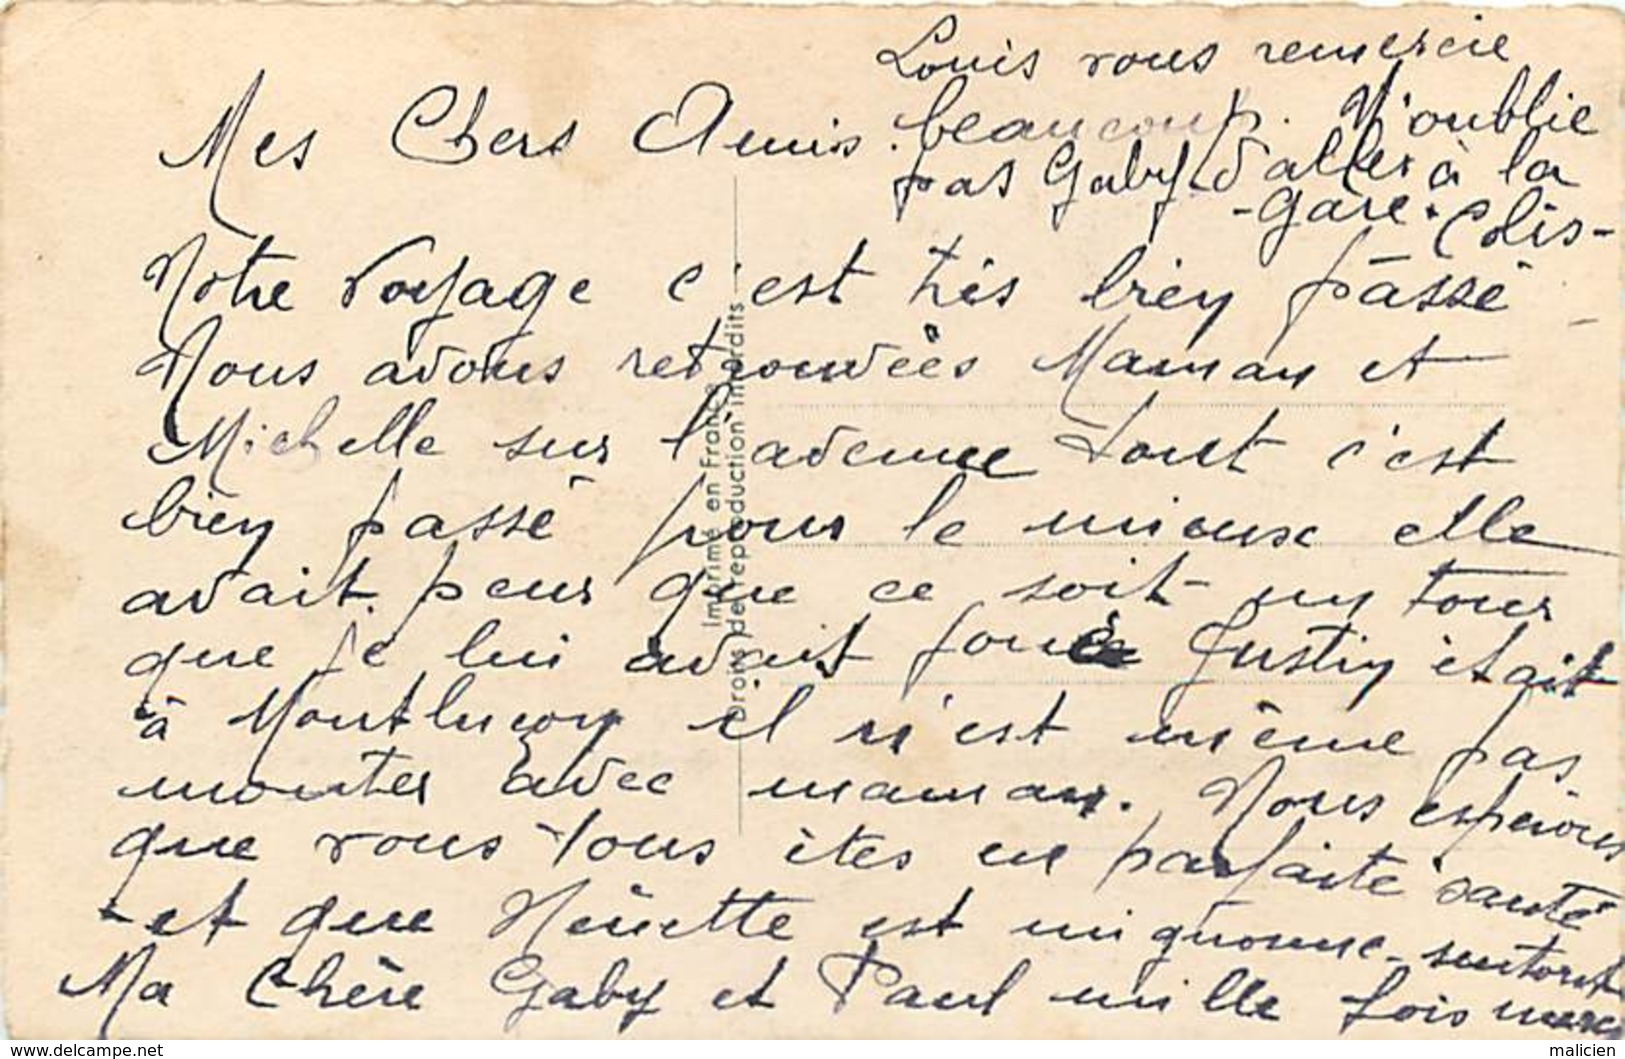 Louis vous remercie
beaucoup. N'oublie
pas Gaby d'aller à la
-gare. Colis-
Mes Chers Amis.
Notre voyage c'est très bien passé
Nous avons retrouvées Maman et
Michelle sur l'avenue tout c'est
bien passé pour le mieux elle
avait peur que ce soit un tour
que je lui avait joué Justin était
à Montluçon il n'est même pas
monter avec maman. Nous espérons
que vous tous êtes en parfaite santé
-et que Nénette est mignonne-surtout
Ma Chère Gaby et Paul mille fois merci
Imprimé en France
Droits de reproduction interdits
www.delcampe.net
malicien